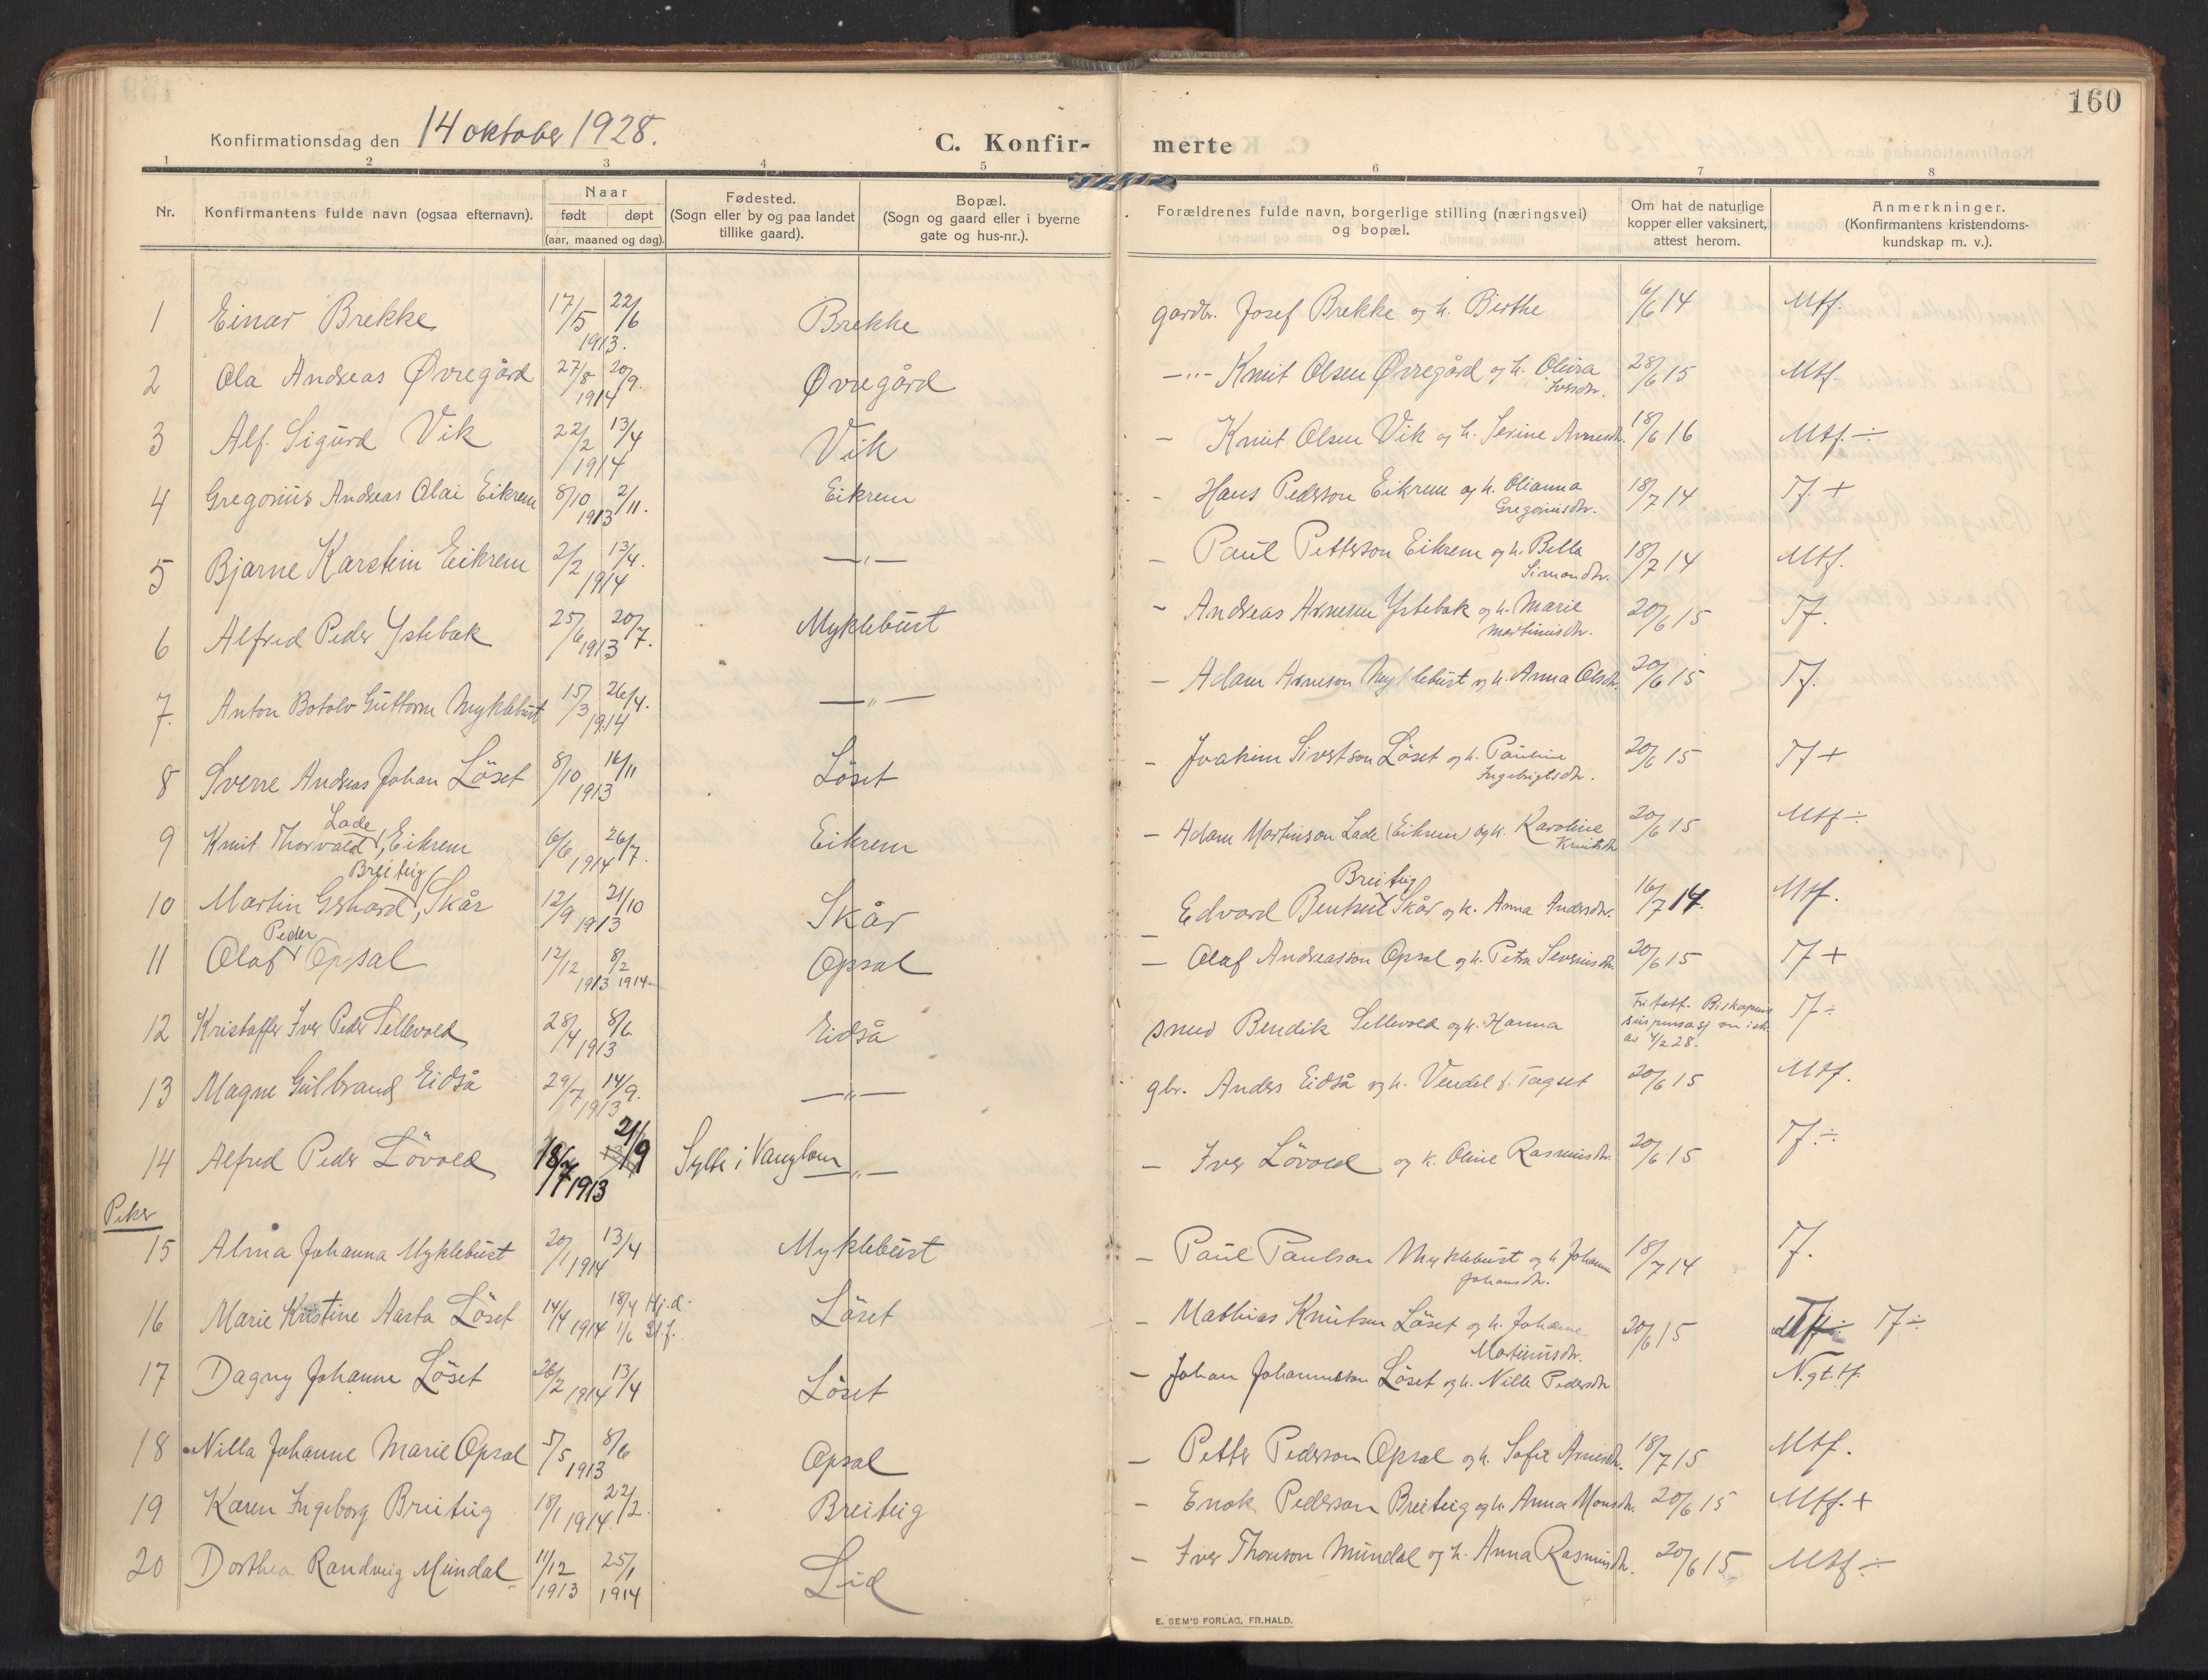 160
Konfirmationsdag den 14 oktober 1928.
C. Konfir- merte
1 2 3 4 5 6 7 8
Nr. Konfirmantens fulde navn (ogsaa efternavn). Naar født døpt (aar, maaned og dag). Fødested. (Sogn eller by og paa landet tillike gaard). Bopæl. (Sogn og gaard eller i byerne gate og hus-nr.). Forældrenes fulde navn, borgerlige stilling (næringsvei) og bopæl. Om hat de naturlige kopper eller vaksinert, attest herom. Anmerkninger. (Konfirmantens kristendomskundskap m. v.).
1 Einar Brekke 17/5 22/6 1913. Brekke gardbr. Josef Brekke og h. Birthe 6/6 14 Mtf.
2 Ola Andreas Øvregård 27/8 20/9. 1914 Øvregård -"- Knut Olsen Øvregård og h. Olivia Iversdtr. 28/6 15 Mtf.
3 Alf. Sigurd Vik 22/2 13/4 1914 Vik - Knut Olsen Vik og h. Serine Arnesdtr. 18/6 16 Mtf. ÷
4 Gregorius Andreas Olai Eikrem 8/10 2/11. 1913 Eikrem - Hans Pederson Eikrem og h. Olianna Gregoriusdtr. 18/7 14 Tf. +
5 Bjarne Karstein Eikrem 2/2 13/4. 1914 -"- - Paul Petterson Eikrem og h. Bella Simondtr. 18/7 14 Mtf.
6 Alfred Peder Ystebak 25/6 20/7. 1913 Myklebust - Andreas Arnesen Ystebak og h. Marie Martinusdtr. 20/6 15 Tf.
7. Anton Botolv Guttorm Myklebust 15/3 26/4. 1914 -"- - Adam Arneson Myklebust og h. Anna Olsdtr. 20/6 15 Tf.
8 Sverre Andreas Johan Löset 8/10 16/11 1913 Löset - Joakim Sivertson Löset og h. Pauline Ingebrigtsdtr. 20/6 15 Tf +
9 Knut Thorvald Lade, Eikrem 6/6 26/7. 1914 Eikrem - Adam Martinson Lade (Eikrem) og h. Karoline Knutsdtr 20/6 15 Mtf ÷
10 Martin Gerhard Breiteig, Skår 12/9 21/10 1913 Skår - Edvard Bentsen Breiteig Skår og h. Anna Andersdtr. 16/7 14. Mtf.
11 Olaf Peder Opsal 12/12 1913 8/2 1914 Opsal - Olaf Andreasson Opsal og h. Petra Severinsdtr. 20/6 15 Tf +
12 Kristoffer Iver Peder Sellevold 28/4 8/6. 1913 Eidså smed Bendik Sellevold og h. Hanna av 4/2 28. Tf ÷
13 Magne Gulbrand Eidså 29/7 14/9. 1913 -"- gbr. Anders Eidså og h. Vendel f. Tagset 20/6 15 Mtf.
14 Alfred Peder Lövold 18/7 1913 21/9 Sylte i Vanylven -"- - Iver Lövold og h. Oline Rasmusdtr. 20/6 15 Tf. ÷
Piker
15 Alma Johanna Myklebust 20/1 13/4 1914 Myklebust - Paul Paulson Myklebust og h Johanne Johansdtr. 18/7 14 Tf.
16 Marie Kristine Aasta Löset 14/4 1914 18/4 Hj.d. 1/6 St.f. Löset - Mathias Knutsen Löset og h. Johanne Martinusdtr. 20/6 15 Mtf ÷ Tf ÷
17 Dagny Johanne Löset 26/2 1914 13/4 Löset - Johan Johanneson Löset og h. Nille Pedersdtr N.gt.tf
18 Nilla Johanne Marie Opsal 5/5 8/6 1913 Opsal - Petter Pederson Opsal og h. Sofie Arnesdtr. 18/7 15 Mtf.
19 Karen Ingeborg Breiteig 18/1 1914 22/2. Breiteig - Enok Pederson Breiteig og h. Anna Monsdtr. 20/6 15 Mtf. +
20 Dorthea Randveig Mundal 11/12 1913 25/1 1914 Lid - Iver Thoreson Mundal og h. Anna Rasmusdtr. 20/6 15 Mtf ÷
E. SEM'S FORLAG. FR.HALD.